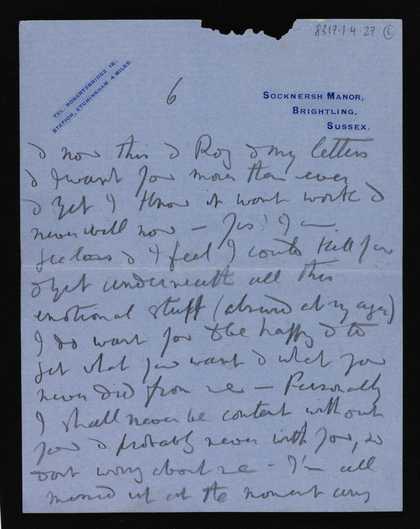 8317.1.4.27 (6)
TEL. ROBERTSBRIDGE 12.
STATION, ETCHINGHAM 4 MILES.
6
SOCKNERSH MANOR,
BRIGHTLING,
SUSSEX.
& now this & Roy & my letters
& I want you more than ever
& yet I know it wont work &
never will now – Yes! I'm
jealous & I feel I could kill you
& yet underneath all this
emotional stuff (absurd at my age)
I do want you to be happy & to
get what you want & what you
never did from me – Personally
I shall never be content without
you & probably never with you, so
dont worry about me – I'm all
messed up at the moment any